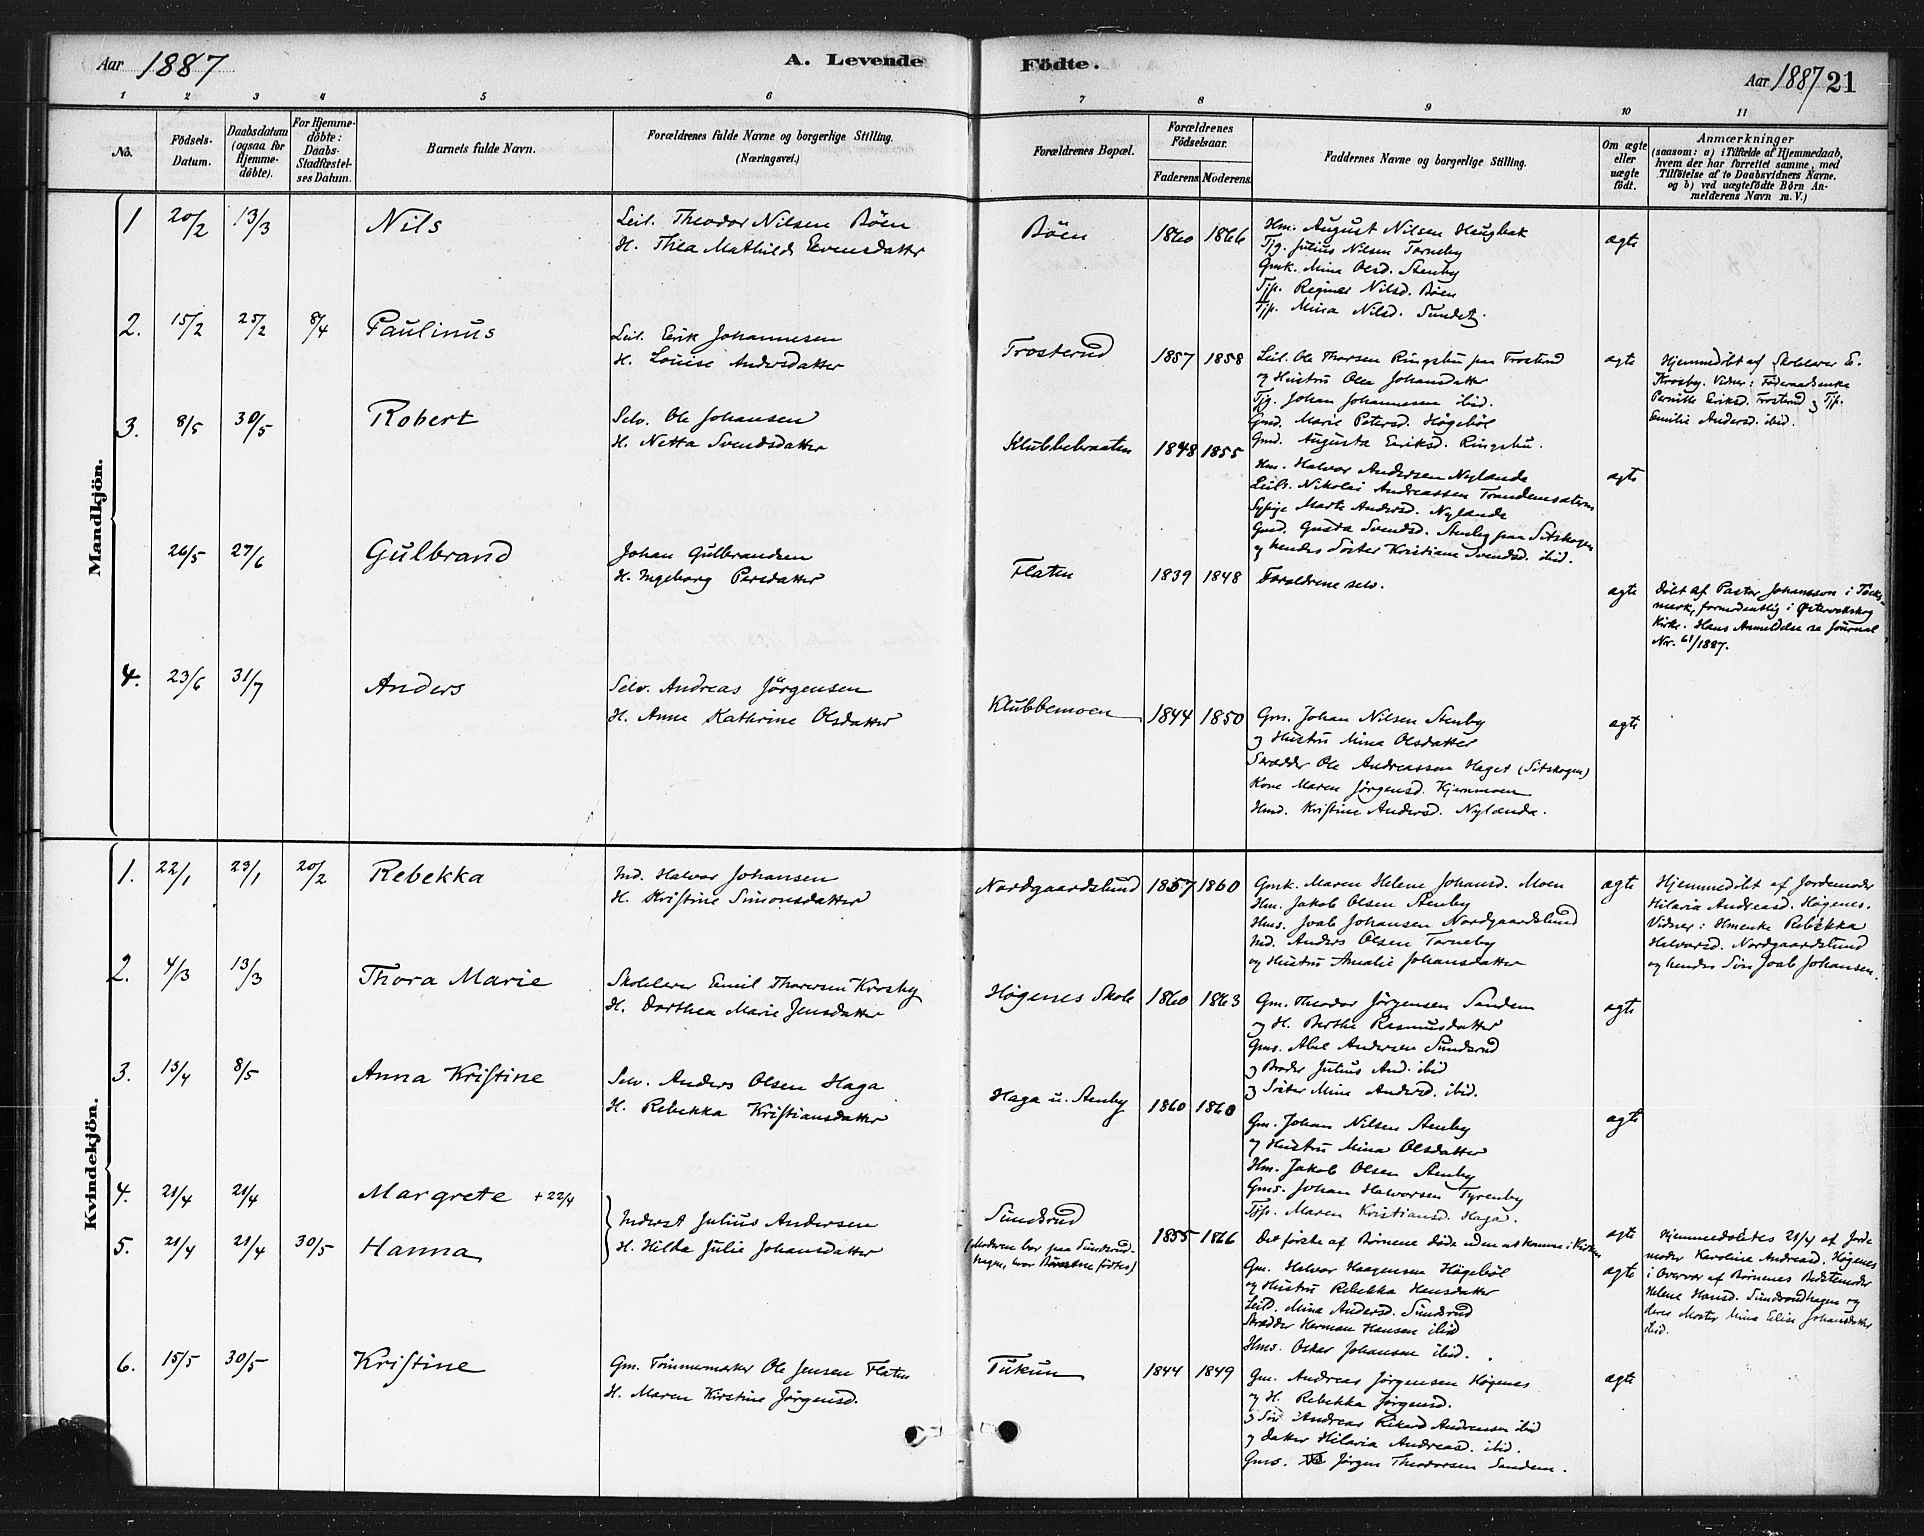 Aar 1887
A. Levende Födte.
Aar 1887 21
1 2 3 4 5 6 7 8 9 10 11
No.
Födsels-Datum.
Daabsdatum (ogsaa for Hjemmedöbte).
For Hjemmedöbte: Daabs-Stadfæstelses Datum.
Barnets fulde Navn.
Forældrenes fulde Navne og borgerlige Stilling.
(Næringsvei.)
Forældrenes Bopæl.
Forældrenes Födselsaar.
Faderens Moderens
Faddernes Navne og borgerlige Stilling.
Om ægte eller uægte födt.
Anmærkninger
(saasom: a) i Tilfelde af Hjemmedaab, hvem der har forrettet samme, med Tilföielse af to Daabsvidners Navne. og b) ved uægtefödte Börn Anmelderens Navn m.V.)
Mandkjön.
1 20/2 13/3 Nils
Leil. Theodor Nilsen Böen
H. Thea Mathilde Evensdatter
Böen 1860 1866
Hm. August Nilsen Haugbak
Tjg. Julius Nilsen Torneby
Gmk. Mina Olsd. Stenby
Tjp. Regine Nilsd. Böen
Tjp. Mina Nilsd. Sundet.
ægte
2. 15/2 25/2 8/4 Paulinus
Leil. Erik Johannesen
H. Louise Andersdatter
Trosterud 1857 1858
Leil. Ole Thorsen Ringshu paa Trosterud
og Hustru Olea Johansdatter
Tjg. Johan Johannesen ibid.
Gmd. Marie Petersd. Högeböl
Gmd. Augusta Eriksd. Ringshu.
ægte
Hjemmedöbt af Skolelærer E.
Krosby. Vidner: Föderaadsenke
Pernille Eriksd. Trosterud og Tjp.
Emilie Andersd. ibid.
3. 8/5 30/5 Robert
Selv. Ole Johansen
H. Netta Svendsdatter
Klubbebraaten 1848 1855
Hm. Halvor Andersen Nylande
Leils. Nikolai Andreassen
Sypige Marte Andersd. Nylande
Gmd. Gusta Svendsd. Stenby paa Sitskogen
og hendes Söster Kristiane Svendsd. ibid.
ægte
26/5 27/6 Gulbrand
Johan Gulbrandsen
H. Ingeborg Persdatter
Flaten 1839 1848 Forældrene selv.
ægte
Döbt af Pastor Johansson i Töcks-
mark, formodentlig i Östervallskog
Kirke. Hans Anmeldelse se Journal
Nr. 61/1887.
4. 23/6 31/7 Anders
Selv. Andreas Jörgensen
H. Anne Kathrine Olsdatter
Klubbemoen 1844 1850
Gm. Johan Nilsen Stenby
og Hustru Mina Olsdatter
Skrædder Ole Andreassen Haget (Sitskogen)
Kone Maren Jörgensd. Kjernmoen
Hmd. Kristine Andersd. Nylande.
ægte
Kvindekjön.
1. 22/1 23/1 20/2 Rebekka
Ind. Halvor Johansen
H. Kristine Simonsdatter
Nordgaardslund 1857 1860
Gmk. Maren Helene Johansd. Moen
Hm. Jakob Olsen Stenby
Hms. Joab Johansen Nordgaardslund
Ind. Anders Olsen Torneby
og Hustru Amalie Johansdatter
ægte
Hjemmedöbt af Jordemoder
Hilaria Andreasd. Högenes.
Vidner: Hmenke Rebekka
Halvorsd. Nordgaardslund
og hendes Sön Joab Johansen.
2. 4/3 13/3 Thora Marie
Skolelærer Emil Thoresen Krosby
H. Dorthea Marie Jensdatter
Högenes Skole 1860 1863
Gm. Theodor Jörgensen Sandem
og H. Berthe Rasmusdatter
Gms. Abel Andersen Sundsrud
og Broder Julius And. ibid
og Söster Mina Andersd. ibid.
ægte
3. 13/4 8/5 Anna Kristine
Selv. Anders Olsen Haga
H. Rebekka Kristiansdatter
Haga u. Stenby 1860 1860
Gm. Johan Nilsen Stenby
og Hustru Mina Olsdatter
Hm. Jakob Olsen Stenby
Gms. Johan Halvorsen Tyrenby
Tjp. Maren Kristiansd. Haga.
ægte
4. 21/4 21/4 Margrete + 22/4
5. 21/4 21/4 30/5 Hanna
Inderst Julius Andersen
H. Hilda Julie Johansdatter
Sundsrud
(Moderen bor paa Sundsrud-
hagen, hvor Börnene födtes)
1855 1866
Det förste af Börnene döde uden at komme i Kirken
Gm. Halvor Haagensen Högeböl
og Hustru Rebekka Hansdatter
Leild. Mina Andersd. Sundsrud
Skrædder Herman Hansen ibid
Hms. Oskar Johansen ibid.
ægte
ægte
Hjemmedöbtes 21/4 af Jorde
moder Karoline Andreasd. Högenes
i Overvær af Börnenes Bedstemoder
Helene Hansd. Sundsrudhagen og
deres Moster Mina Elise Johansdatter
ibid.
6. 15/5 30/5 Kristine
Gm. Tömmermerker Ole Jensen Flaten
H. Maren Kirstine Jörgensd.
Tukun 1844 1849
Gm. Andreas Jörgensen Högenes
og H. Rebekka Jörgensd.
og Sön Andreas Rikard Andreassen ibid
og Datter Hilaria Andreasd. ibid.
Gms. Jörgen Theodorsen Sandem.
ægte